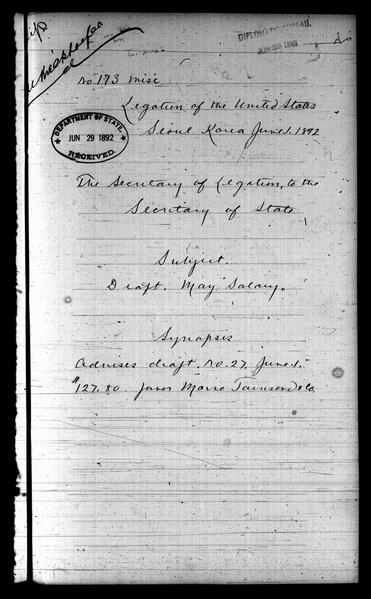 DIPLOMATIC BUREAU.
JUN 29 1892
No 173 misc
Legation of the United States
Seoul Korea June 1. 1892
DEPARTMENT OF STATE.
JUN 29 1892
RECEIVED
The Secretary of Legation, to the
Secretary of State
Subject.
Draft. May Salary.
Synopsis
Advises draft, No. 27. June 1.
$127.80. favor Morse Townsend & Co.